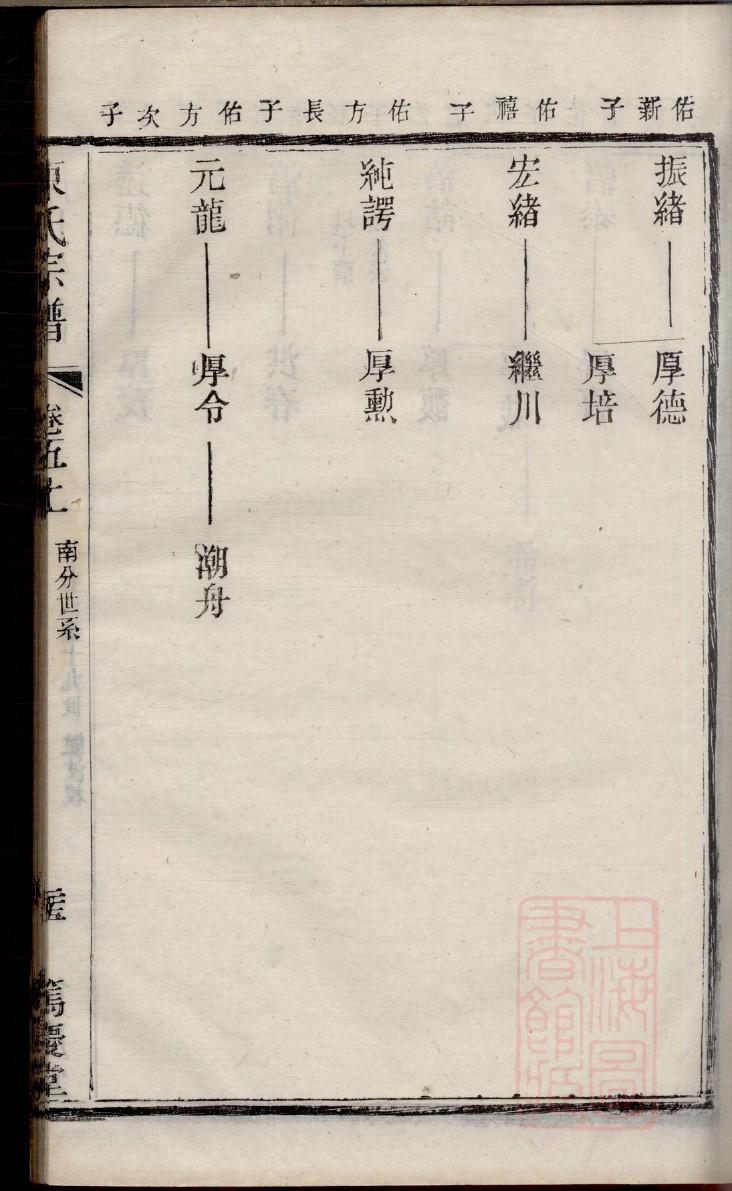 佑新子
佑禧子
佑方長子
佑方次子
振緒
厚德
厚培
宏緒
繼川
純諤
厚勳
元龍
厚令
潮舟
氏宗譜
卷五上
南分世系
篤慶堂
上海圖書館